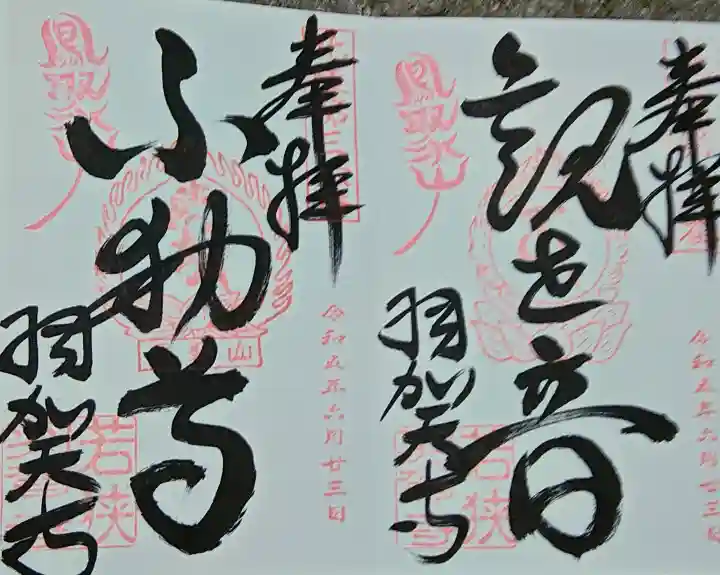 奉拝
観世音
令和五年六月廿三日
羽賀寺
鳳聚山
若狭
奉拝
不動尊
令和五年六月廿三日
羽賀寺
鳳聚山
若狭